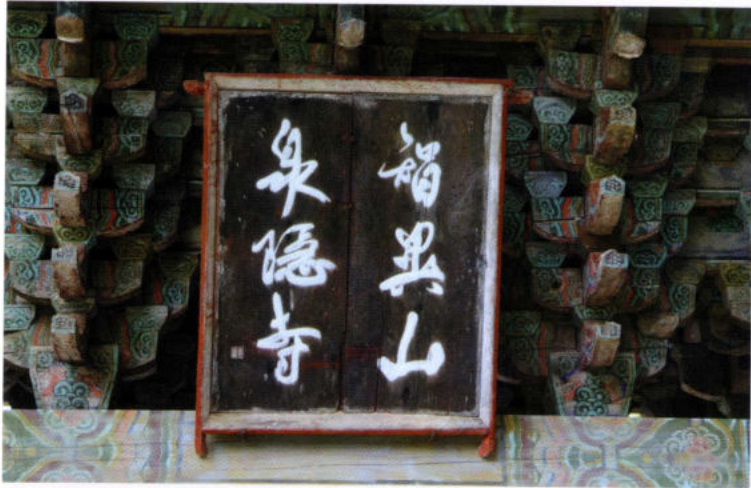 智異山
泉隱寺